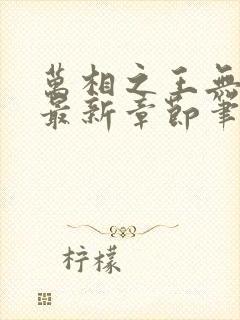 萬相之王無
最新章節筆
柠檬